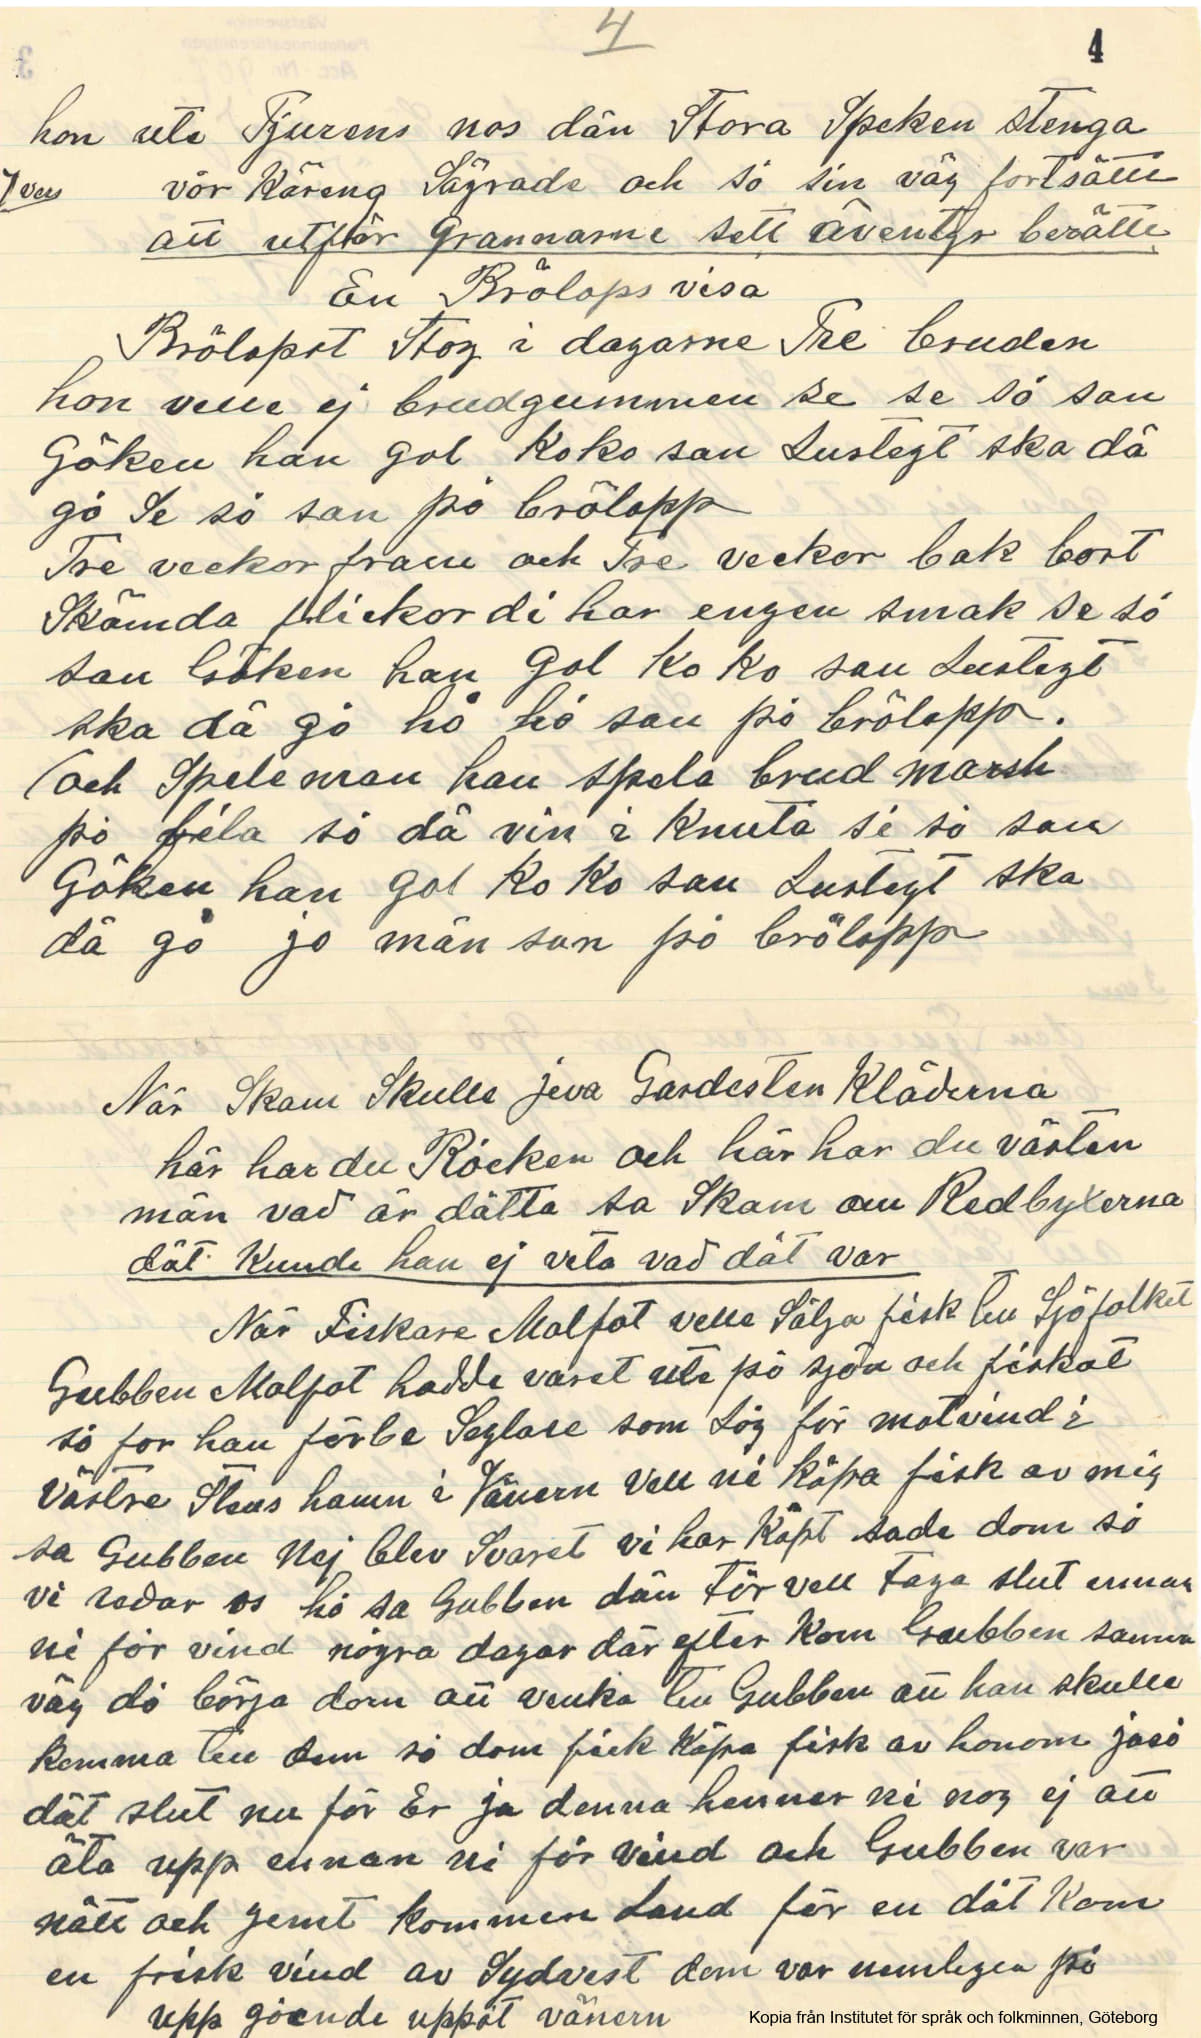 4
4
hon ute Tjurens nos dän Stora Speken stenga
7 vers vör Käreng Sägrade och så sin väg fortsätte
att utför Grannarne sett äventyr berätte
En Brölops visa
Brölopet Stog i dagarne Tre bruden
hon velle ej brudgummen se se så san
Göken han gol Koko san Lustegt ska dä
gå Se så san på brölopp
Tre veckor fram och Tre veckor bak bort
Skämda flickor di har engen smak se så
san Göken han gol Ko Ko san Lustegt
ska dä gå hå hå san på brölopp.
(och Speleman han spela brud marsh
på fela så dä vin i Knuta si så san
Göken han gol Ko Ko san Lustegt ska
dä gå jo män san på brölopp
När Skam Skulle jeva Gardesten Kläderna
här har du Råcken och här har du västen
män vad är dätta sa Skam om Redbyxerna
dät Kunde han ej veta vad dät var
När Fiskare Malfot velle Sälja fisk tell Sjöfolket
Gubben Malfot hadde varet ute på sjön och fiskat
så for han förbe Seglare som Låg för motvind i
Västre Stens hamn i Vänern Vell ni köpa fisk av mig
sa Gubben Nej blev Svaret vi har Köpt sade dom så
vi redar os hå sa Gubben dän Tör vell Taga slut ennan
ni får vind några dagar där efter Kom Gubben samma
väg då börja dom att venka tell Gubben att han skulle
komma tell dem så dom fick Köpa fisk av honom jaså
dät slut nu för Er ja denna henner ni nog ej att
äta upp ennan ni får vind och Gubben var
nätt och jemt kommen Land för en dät Kom
en frisk vind av Sydvest dom var nemligen på
upp gående uppåt vänern
Kopia från Institutet för språk och folkminnen, Göteborg